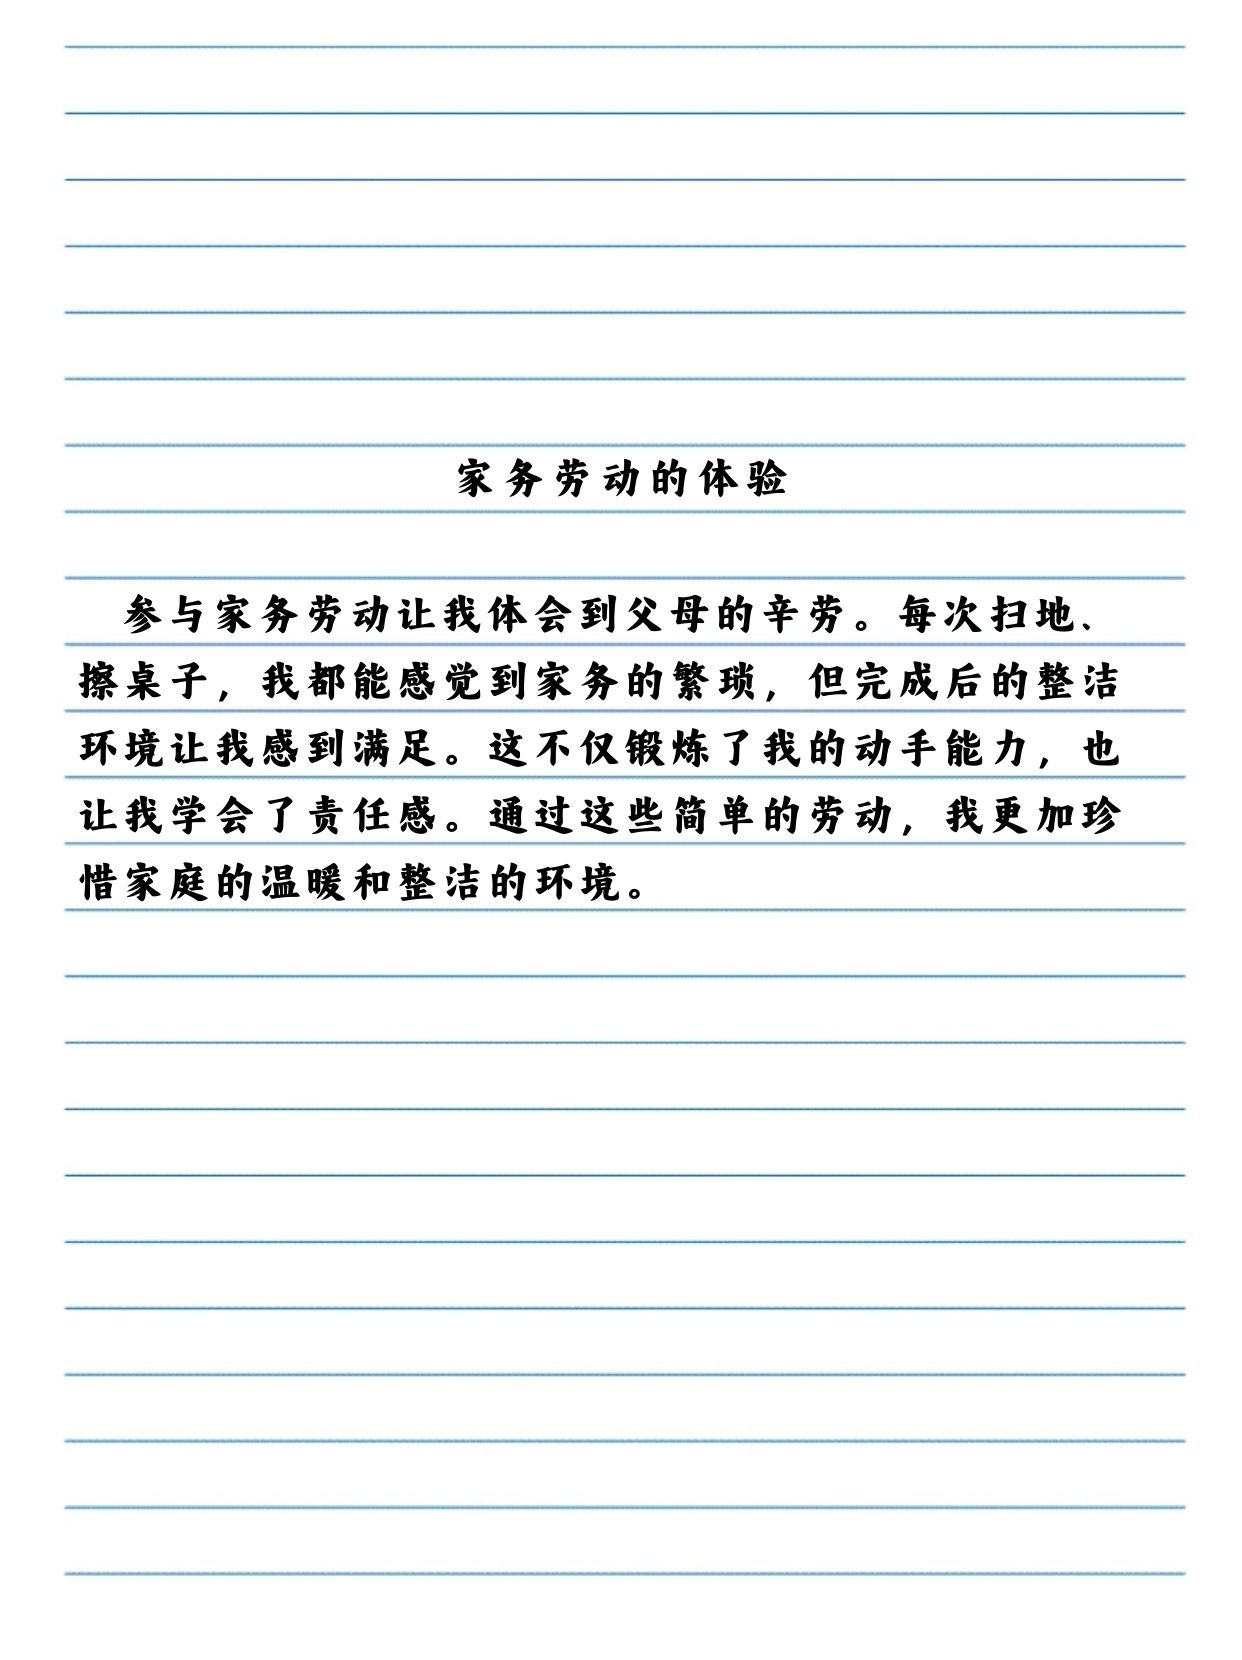 家务劳动的体验
参与家务劳动让我体会到父母的辛劳。每次扫地、
擦桌子，我都能感觉到家务的繁琐，但完成后的整洁
环境让我感到满足。这不仅锻炼了我的动手能力，也
让我学会了责任感。通过这些简单的劳动，我更加珍
惜家庭的温暖和整洁的环境。